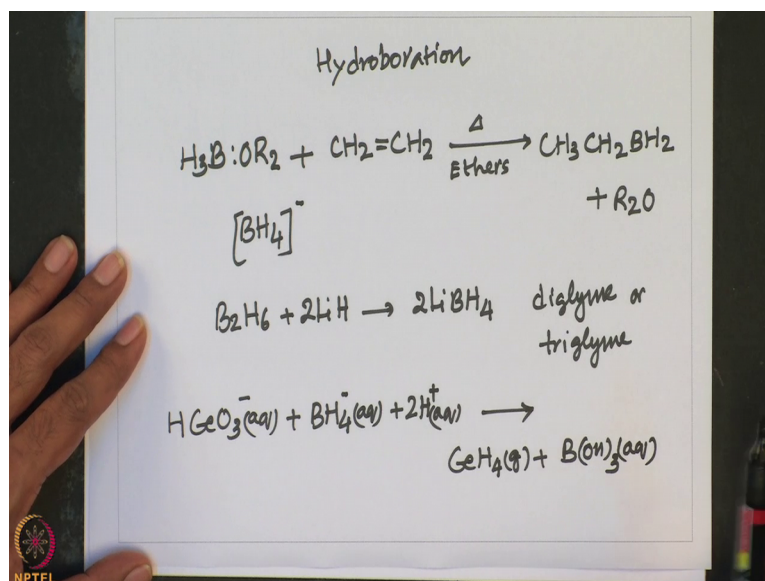 Hydroboration
H3B:OR2 + CH2=CH2 Δ → Ethers CH3CH2BH2
+ R2O
[BH4]⁻
B2H6 + 2LiH → 2LiBH4 diglyme or
triglyme
HGeO3⁻(aq) + BH4⁻(aq) + 2H⁺(aq) →
GeH4(g) + B(OH)3(aq)
NPTEL